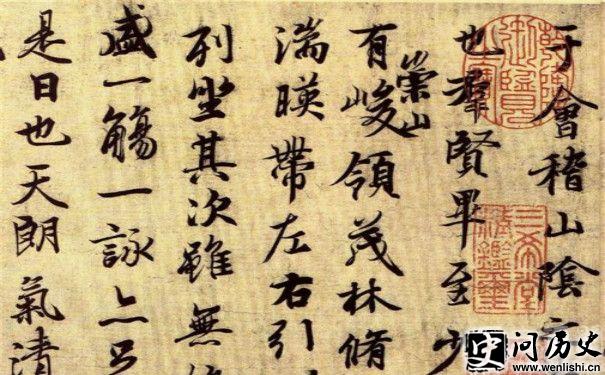 于會稽山陰
也羣賢畢至少
有崇山峻領茂林脩
湍暎帶左右引
列坐其次雖無
盛一觴一詠亦足
是日也天朗氣清
三希堂精鑑璽
问历史
www.wenlishi.cn